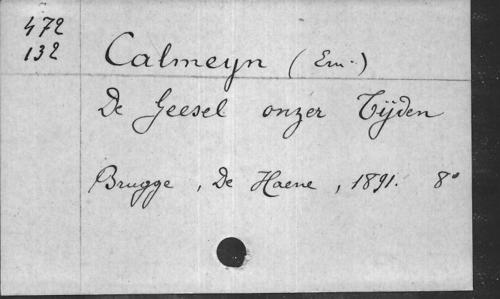 472
132
Calmeyn (Em.)
De Geesel onzer Tijden
Brugge, De Haene, 1891. 8°